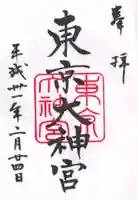 奉拝
東京大神宮
東京大神宮
平成卅一年二月廿四日